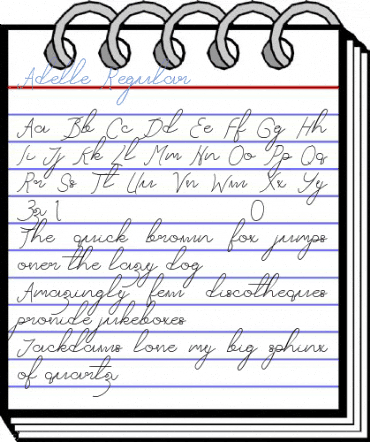 Adelle Regular
Aa Bb Cc Dd Ee Ff Gg Hh
Ii Jj Kk Ll Mm Nn Oo Pp Qq
Rr Ss Tt Uu Vv Ww Xx Yy
Zz 1 0
The quick brown fox jumps
over the lazy dog
Amazingly few discotheques
provide jukeboxes
Jackdaws love my big sphinx
of quartz